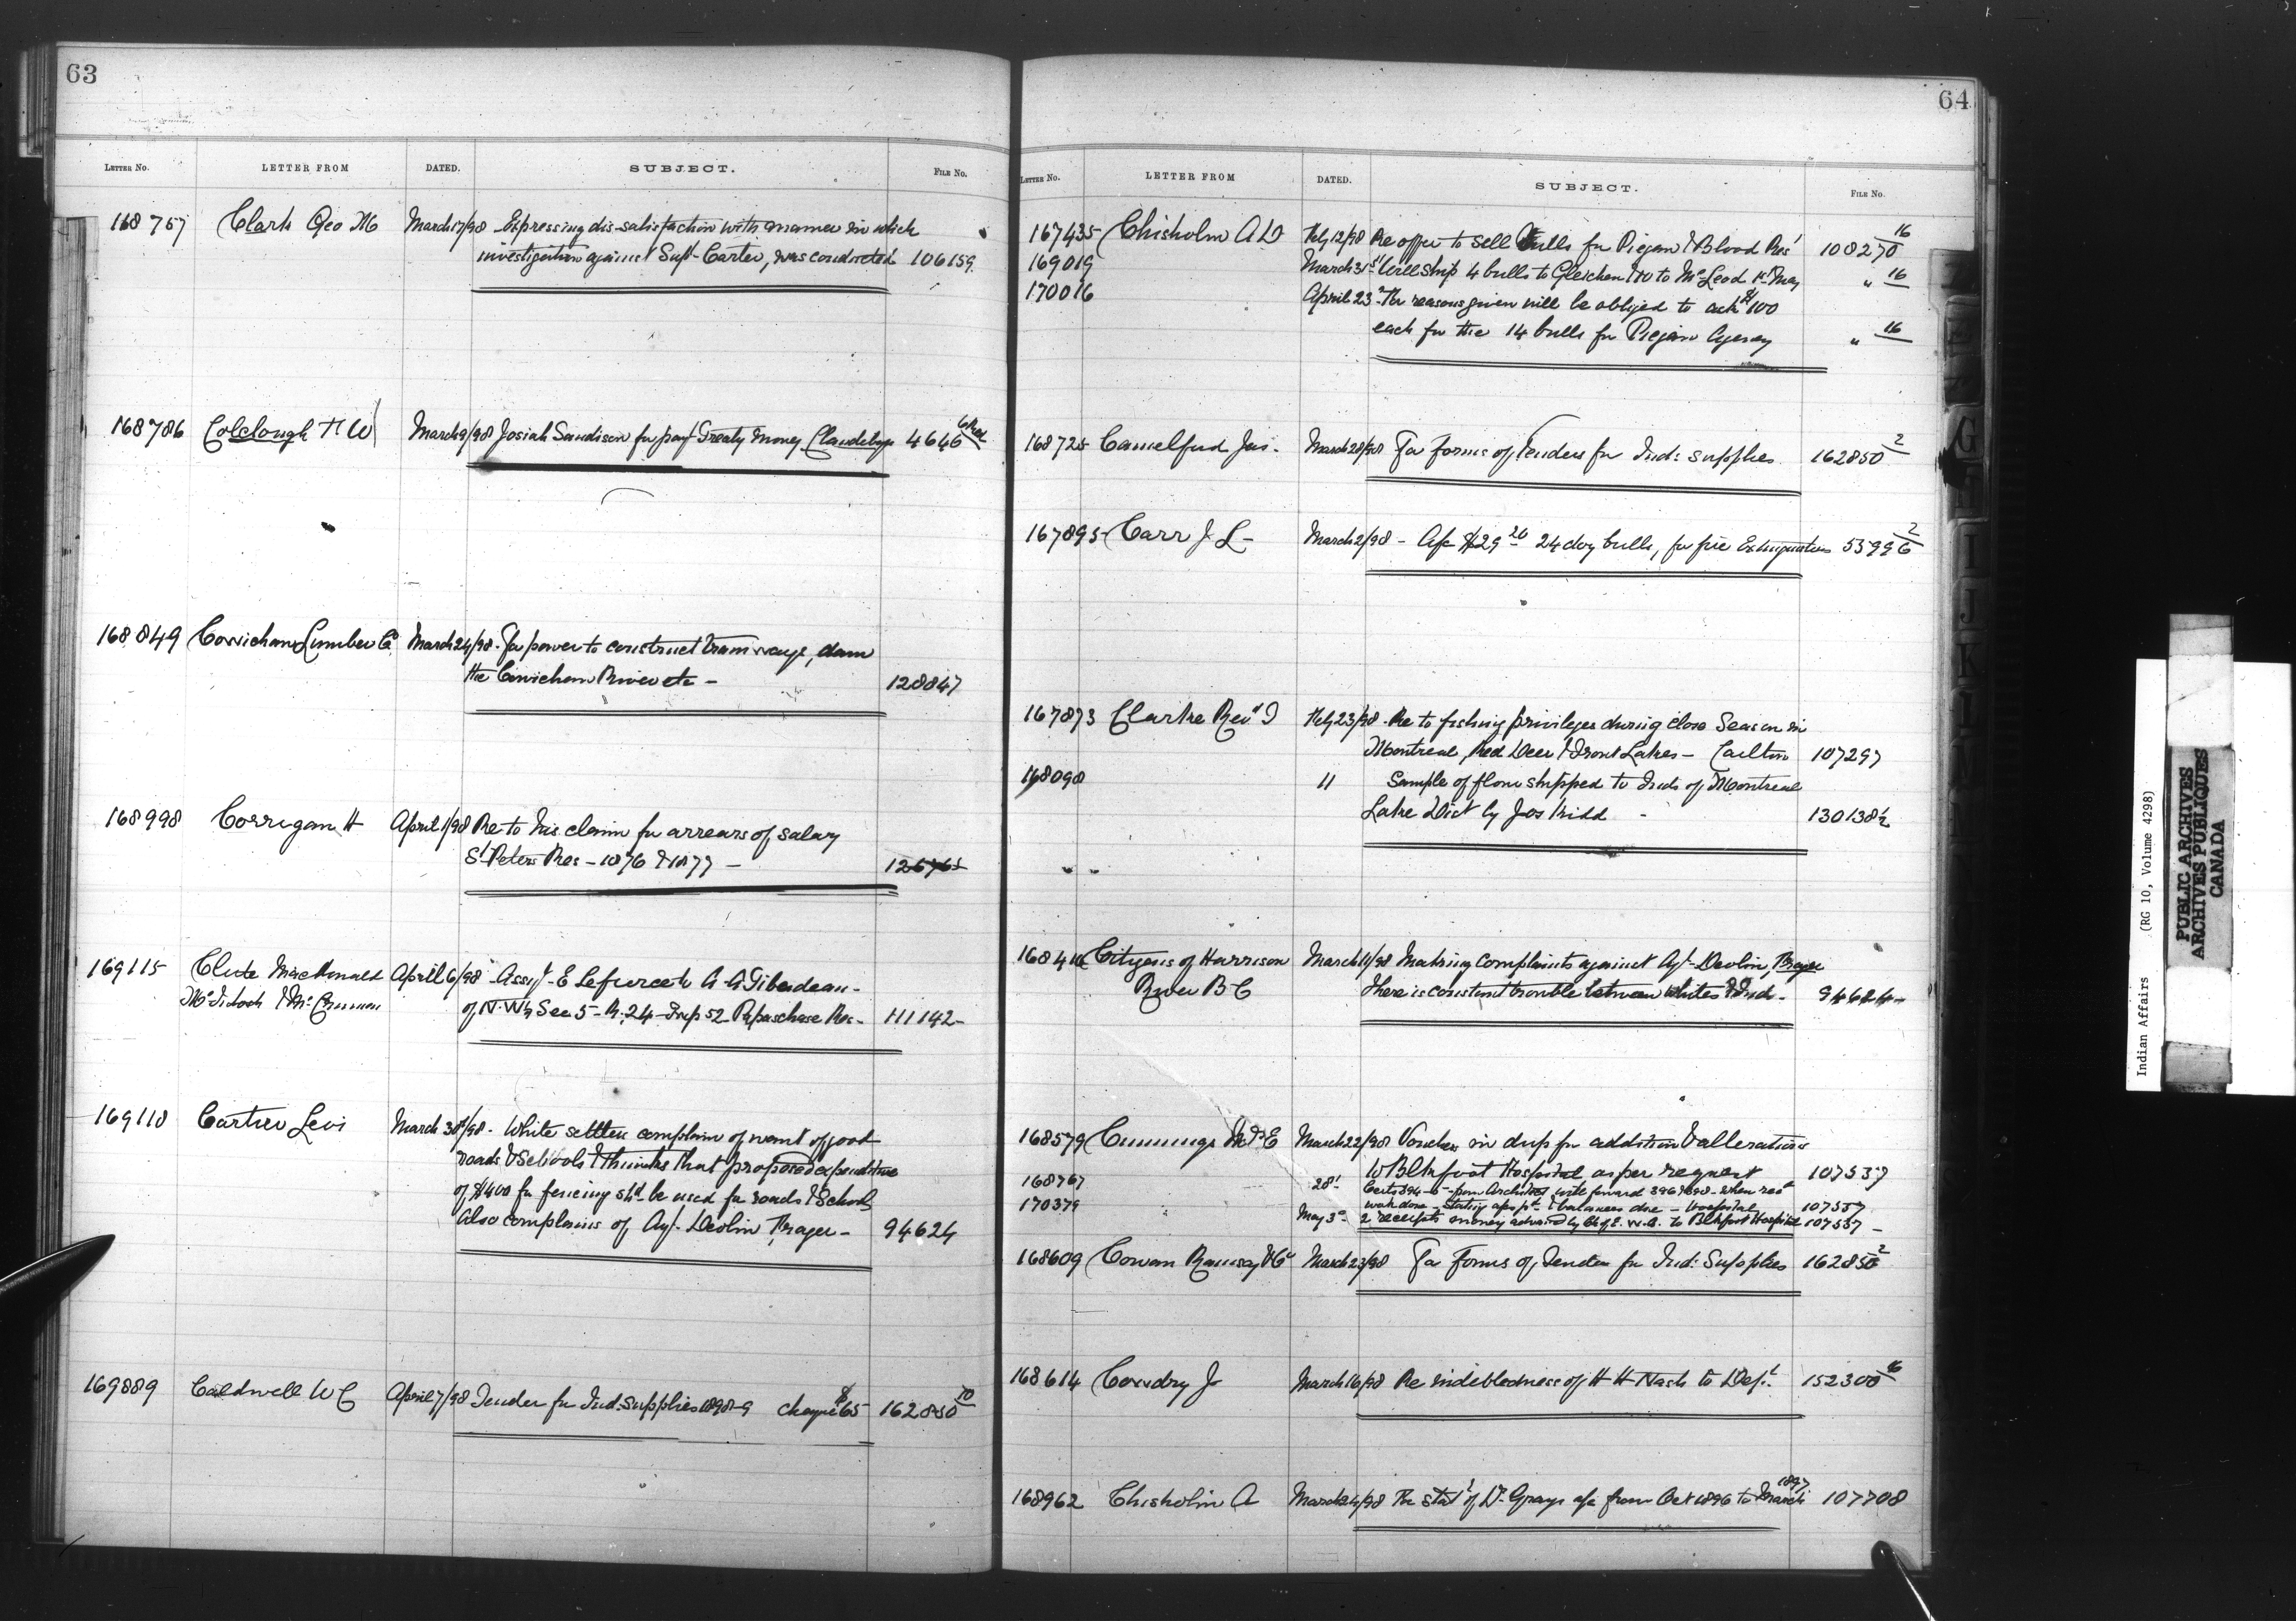 63
LETTER No. LETTER FROM DATED. SUBJECT. FILE No.
168757 Clark Geo M March 17/98 Expressing dis-satisfaction with manner in which
investigation against Supt Carter, was conducted 106159
168786 Colclough H W March 9/98 Josiah Sandison for pay Treaty money Clandeboye 4646
168849 Cowichan Lumber Co March 24/98 - For power to construct tramways, dam
the Cowichan River etc - 128847
168998 Corrigan H April 1/98 Re to his claim for arrears of salary
St Peters Res - 1876 & 1877 - 126765
169115 Clute MacDonald April 6/98 - Assgt - E Lefurce to A-A Tiberdeau -
of N.W¼ Sec 5 - R. 24 - Twp 52 Papaschase Res - 111142 -
169118 Cartier Levi March 30/98 - White settlers complain of want of good
roads & Schools & thinks that proposed expenditure
of $400 for fencing shd be used for roads & School
Also complains of Agt. Devlin Fraser - 94624
169889 Caldwell W C April 7/98 Tender for Ind. Supplies 1898-9 cheque $65 162850 10
64
LETTER No. LETTER FROM DATED. SUBJECT. FILE No.
167435 Chisholm A D Feby 12/98 Re offer to sell Bulls for Piegan & Blood Res' 108270 16
169019 March 31st Will ship 4 bulls to Gleichen & 10 to McLeod 1st May " 16
170016 April 23 - For reasons given will be obliged to ask $100
each for the 14 bulls for Piegan Agency " 16
168725 Camelford Jas. March 28/98 For forms of Tenders for Ind: supplies 162850 2
167895 Carr J. L - March 2/98 - A/c $29 20 24 doz bulls, for fire Extinguishers 55996 2
167873 Clarke Revd I Feby 23/98 - Re to fishing privileges during close Season in
Montreal, Red Deer & Trout Lakes - Carlton 107297
168098 " Sample of flour shipped to Inds of Montreal
Lake Dist by Jos Kidd - 130138½
168410 Citizens of Harrison March 11/98 Making complaints against Agt - Devlin, Fraser
River B C There is constant trouble between Whites & Inds - 94624 -
168579 Cummings March 22/98 Vouchers in dup for addition & alterations
to Blkfoot Hospital as per request 107537
168767 28" Certs 394-5 - from Architect will forward 396 & 398 - when recd
170379 work done - & balances due - Hospital 107537
May 3 - 2 receipts money advanced by to Blkfoot Hospital 107537 -
168609 Cowan Ramsay & Co March 23/98 For Forms of Tender for Ind: Supplies 162850 2
168614 Cowdry J March 16/98 Re indebtedness of H H Nash to Dept. 152300 46
168962 Chisholm A March 24/98 Re statt of Dr. Grays a/c from Oct 1896 to March 1897 107708
Indian Affairs (RG 10, Volume 4298)
PUBLIC ARCHIVES
ARCHIVES PUBLIQUES
CANADA